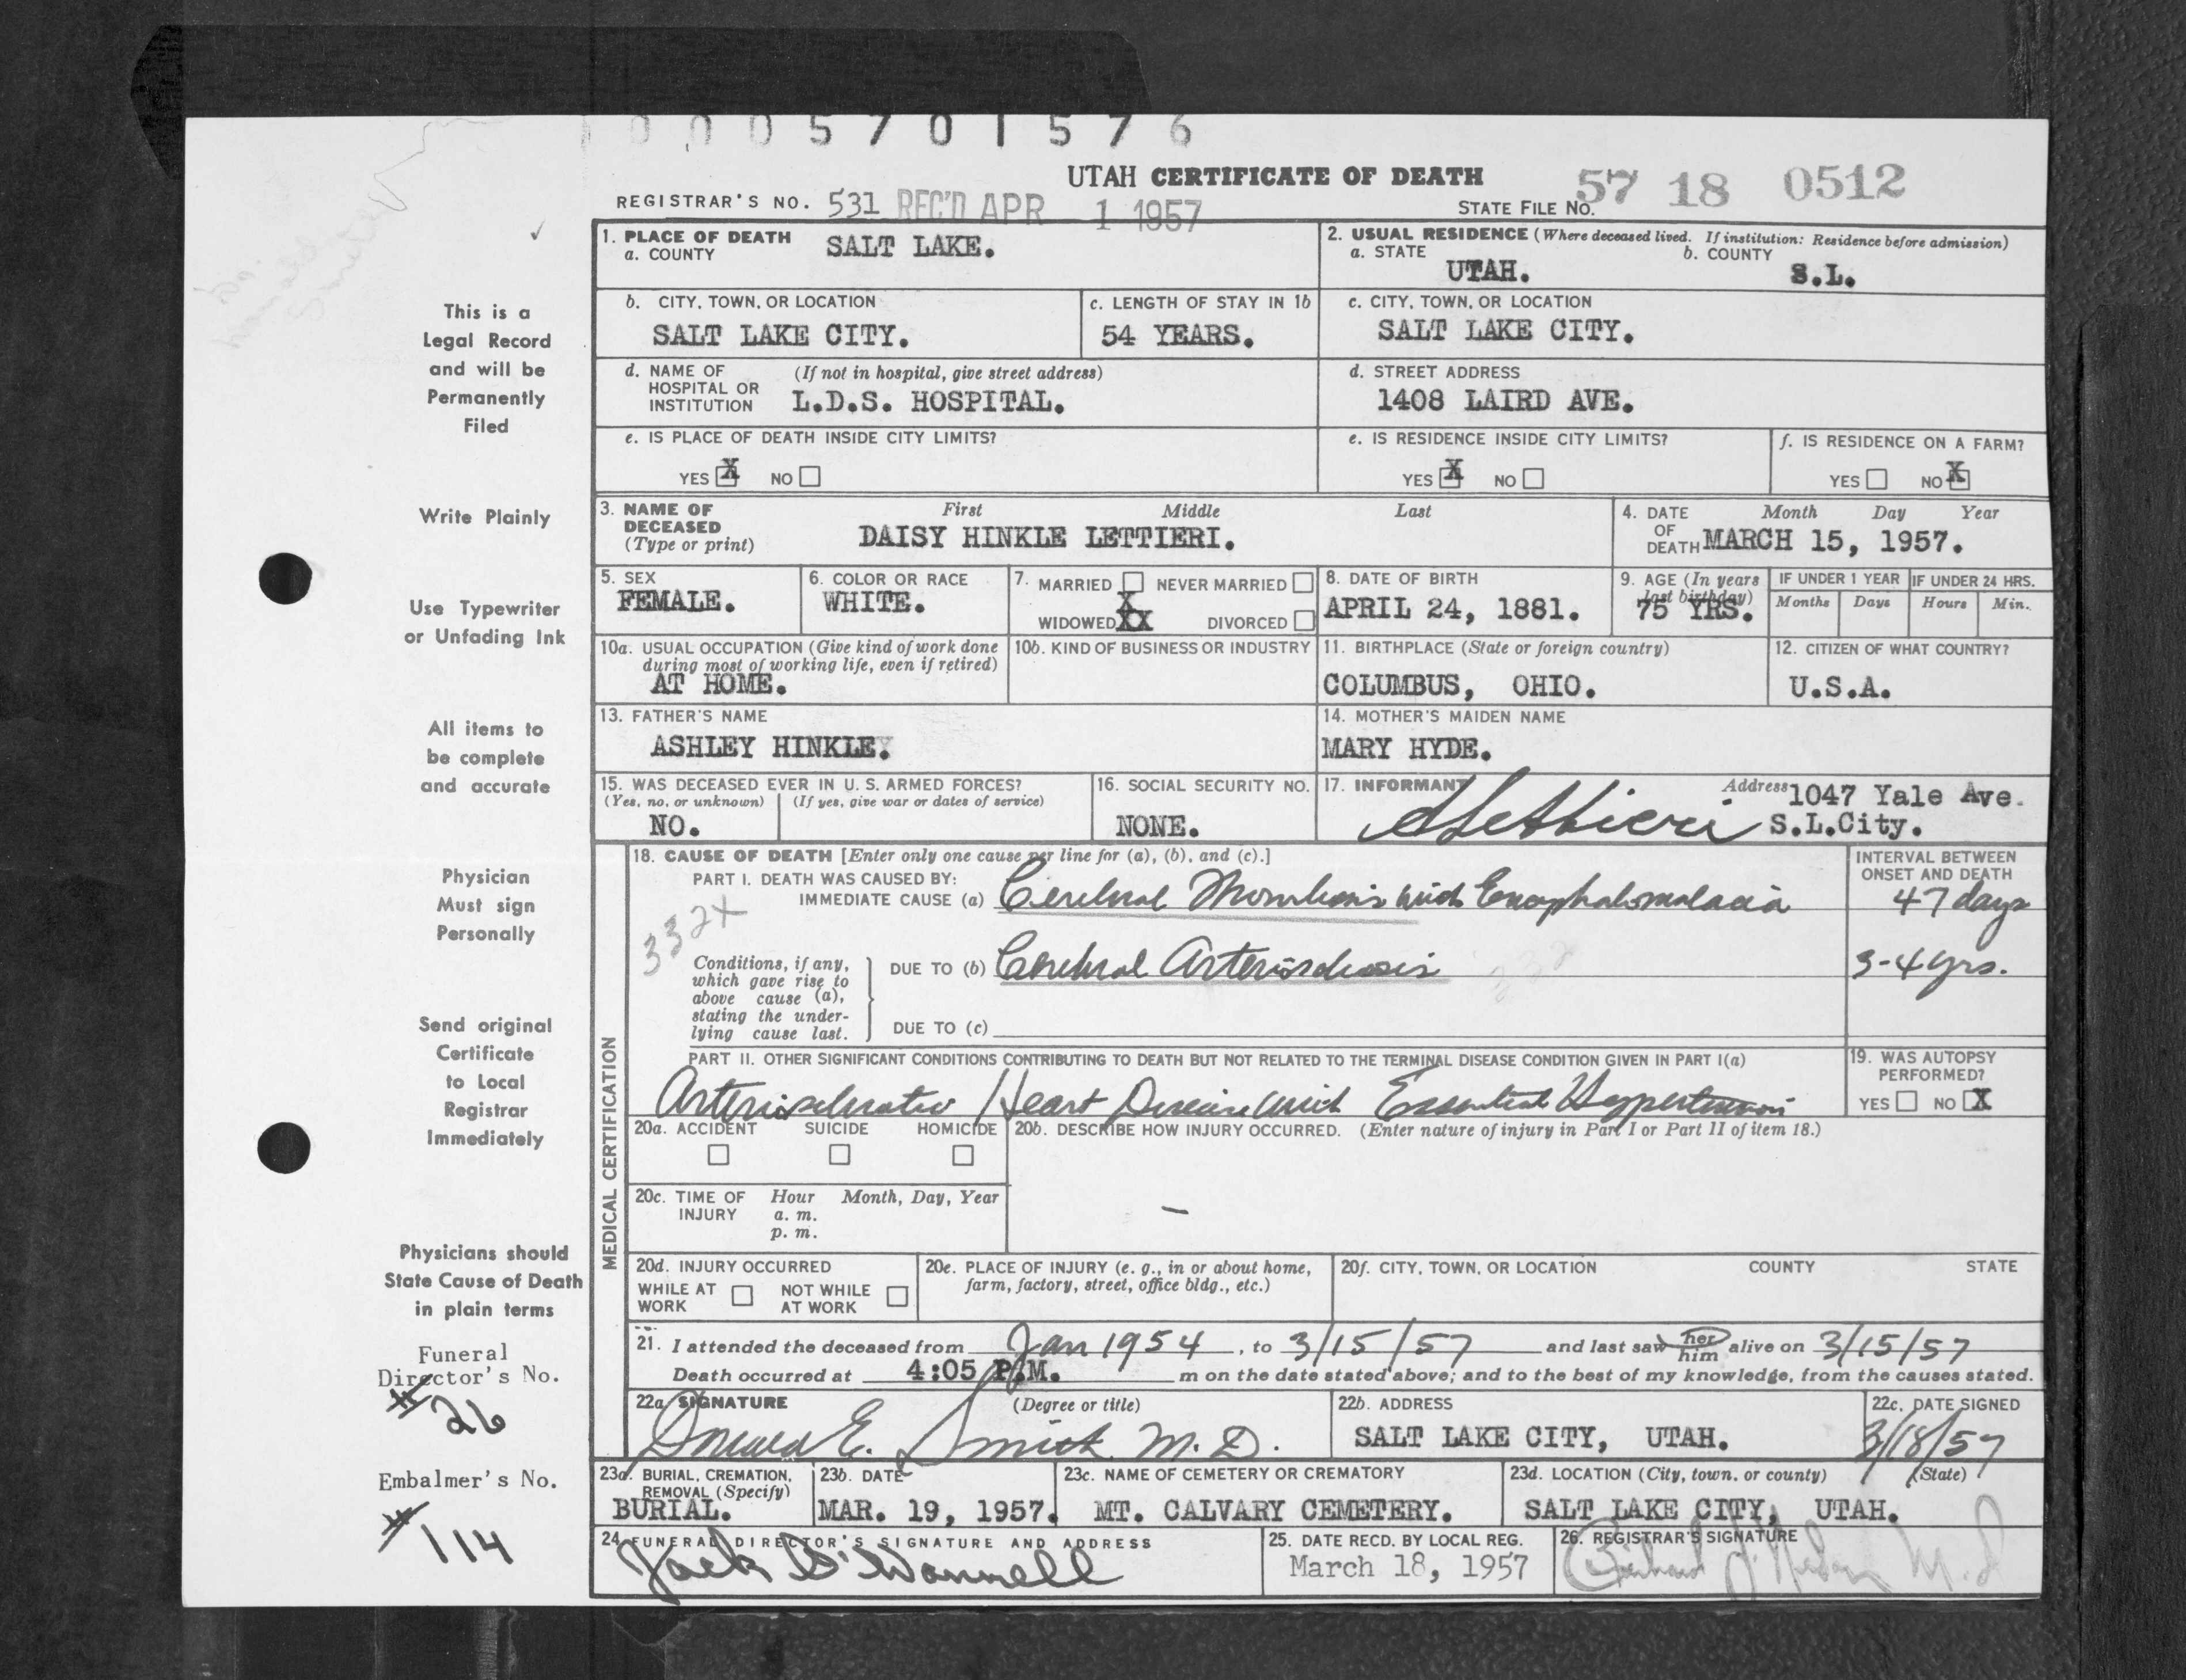 0005701576
UTAH CERTIFICATE OF DEATH
57 18 0512
REGISTRAR'S NO. 531 REC'D APR 1 1957
STATE FILE NO.
This is a
Legal Record
and will be
Permanently
Filed
Write Plainly
Use Typewriter
or Unfading Ink
All items to
be complete
and accurate
Physician
Must sign
Personally
Send original
Certificate
to Local
Registrar
Immediately
Physicians should
State Cause of Death
in plain terms
Funeral
Director's No.
# 26
Embalmer's No.
# 114
1. PLACE OF DEATH
a. COUNTY SALT LAKE.
2. USUAL RESIDENCE (Where deceased lived. If institution: Residence before admission)
a. STATE UTAH. b. COUNTY S.L.
b. CITY, TOWN, OR LOCATION
SALT LAKE CITY.
c. LENGTH OF STAY IN 1b
54 YEARS.
c. CITY, TOWN, OR LOCATION
SALT LAKE CITY.
d. NAME OF HOSPITAL OR INSTITUTION (If not in hospital, give street address)
L.D.S. HOSPITAL.
d. STREET ADDRESS
1408 LAIRD AVE.
e. IS PLACE OF DEATH INSIDE CITY LIMITS?
YES X NO
e. IS RESIDENCE INSIDE CITY LIMITS?
YES X NO
f. IS RESIDENCE ON A FARM?
YES NO X
3. NAME OF DECEASED (Type or print)
First Middle Last
DAISY HINKLE LETTIERI.
4. DATE OF DEATH Month Day Year
MARCH 15, 1957.
5. SEX
FEMALE.
6. COLOR OR RACE
WHITE.
7. MARRIED NEVER MARRIED
X
WIDOWED XX DIVORCED
8. DATE OF BIRTH
APRIL 24, 1881.
9. AGE (In years last birthday)
75 YRS.
IF UNDER 1 YEAR IF UNDER 24 HRS.
Months Days Hours Min.
10a. USUAL OCCUPATION (Give kind of work done during most of working life, even if retired)
AT HOME.
10b. KIND OF BUSINESS OR INDUSTRY
11. BIRTHPLACE (State or foreign country)
COLUMBUS, OHIO.
12. CITIZEN OF WHAT COUNTRY?
U.S.A.
13. FATHER'S NAME
ASHLEY HINKLE.
14. MOTHER'S MAIDEN NAME
MARY HYDE.
15. WAS DECEASED EVER IN U. S. ARMED FORCES?
(Yes, no, or unknown) (If yes, give war or dates of service)
NO.
16. SOCIAL SECURITY NO.
NONE.
17. INFORMANT Address 1047 Yale Ave.
Lettieri S.L.City.
MEDICAL CERTIFICATION
18. CAUSE OF DEATH [Enter only one cause per line for (a), (b), and (c).]
INTERVAL BETWEEN ONSET AND DEATH
PART I. DEATH WAS CAUSED BY:
IMMEDIATE CAUSE (a) Cerebral Thrombosis with Encephalomalacia 47 days
332X
Conditions, if any, which gave rise to above cause (a), stating the underlying cause last.
DUE TO (b) Cerebral Arteriosclerosis 3-4 yrs.
332
DUE TO (c)
PART II. OTHER SIGNIFICANT CONDITIONS CONTRIBUTING TO DEATH BUT NOT RELATED TO THE TERMINAL DISEASE CONDITION GIVEN IN PART I(a)
Arteriosclerotic Heart Disease with Essential Hypertension
19. WAS AUTOPSY PERFORMED?
YES NO X
20a. ACCIDENT SUICIDE HOMICIDE
20b. DESCRIBE HOW INJURY OCCURRED. (Enter nature of injury in Part I or Part II of item 18.)
–
20c. TIME OF INJURY Hour Month, Day, Year
a. m.
p. m.
20d. INJURY OCCURRED
WHILE AT WORK NOT WHILE AT WORK
20e. PLACE OF INJURY (e. g., in or about home, farm, factory, street, office bldg., etc.)
20f. CITY, TOWN, OR LOCATION COUNTY STATE
21. I attended the deceased from Jan 1954, to 3/15/57 and last saw her him alive on 3/15/57
Death occurred at 4:05 P.M. m on the date stated above; and to the best of my knowledge, from the causes stated.
22a. SIGNATURE (Degree or title)
Donald E. Smith M.D.
22b. ADDRESS
SALT LAKE CITY, UTAH.
22c. DATE SIGNED
3/18/57
23a. BURIAL, CREMATION, REMOVAL (Specify)
BURIAL.
23b. DATE
MAR. 19, 1957.
23c. NAME OF CEMETERY OR CREMATORY
MT. CALVARY CEMETERY.
23d. LOCATION (City, town, or county) (State)
SALT LAKE CITY, UTAH.
24. FUNERAL DIRECTOR'S SIGNATURE AND ADDRESS
Jack O'Donnell
25. DATE RECD. BY LOCAL REG.
March 18, 1957
26. REGISTRAR'S SIGNATURE
M.D.